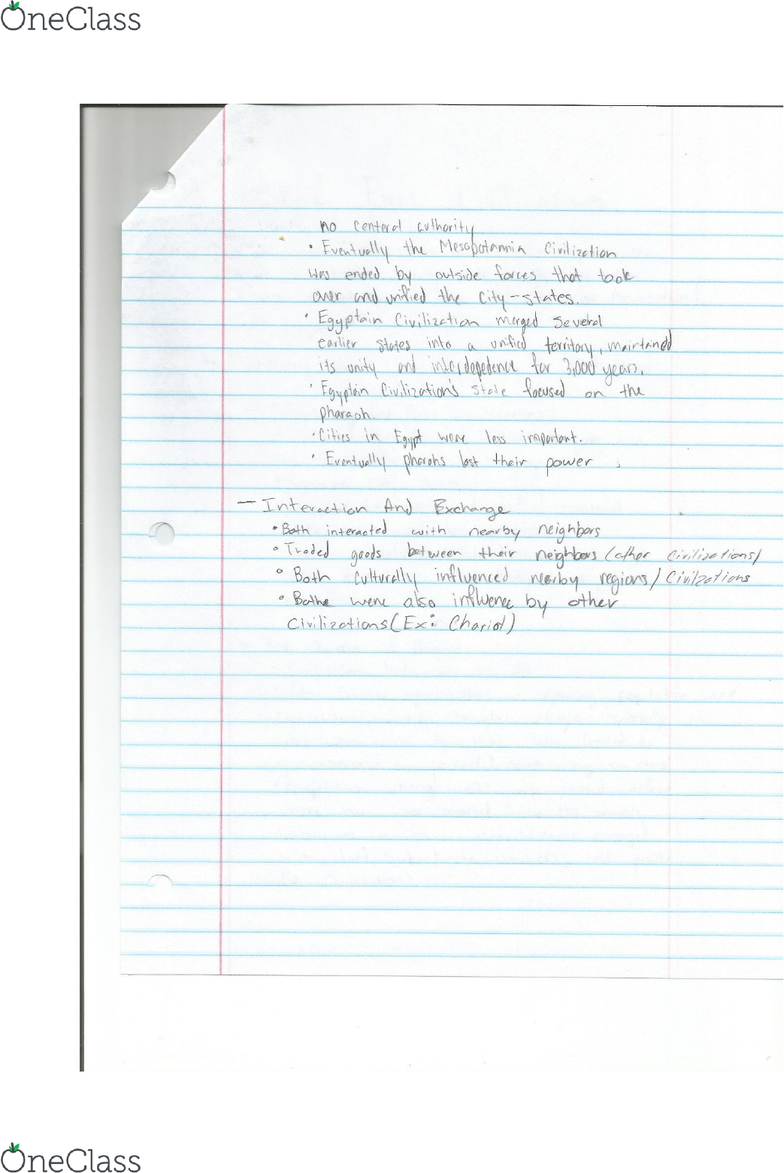 OneClass
no centeral authority
• Eventually the Mesopotamnia Civilization
was ended by outside forces that took
over and unified the City-states.
• Egyptain Civilization merged several
earlier states into a unified territory, maintained
its unity and interdependence for 3,000 years.
• Egyptain Civilization's state focused on the
pharaoh.
• Cities in Egypt were less important.
• Eventually pharohs lost their power
— Interaction And Exchange
• Both interacted with nearby neighbors
• Traded goods between their neighbors (other Civilizations)
• Both culturally influenced nearby regions/Civilzations
• Bothe were also influence by other
Civilizations (Ex: Chariot)
OneClass